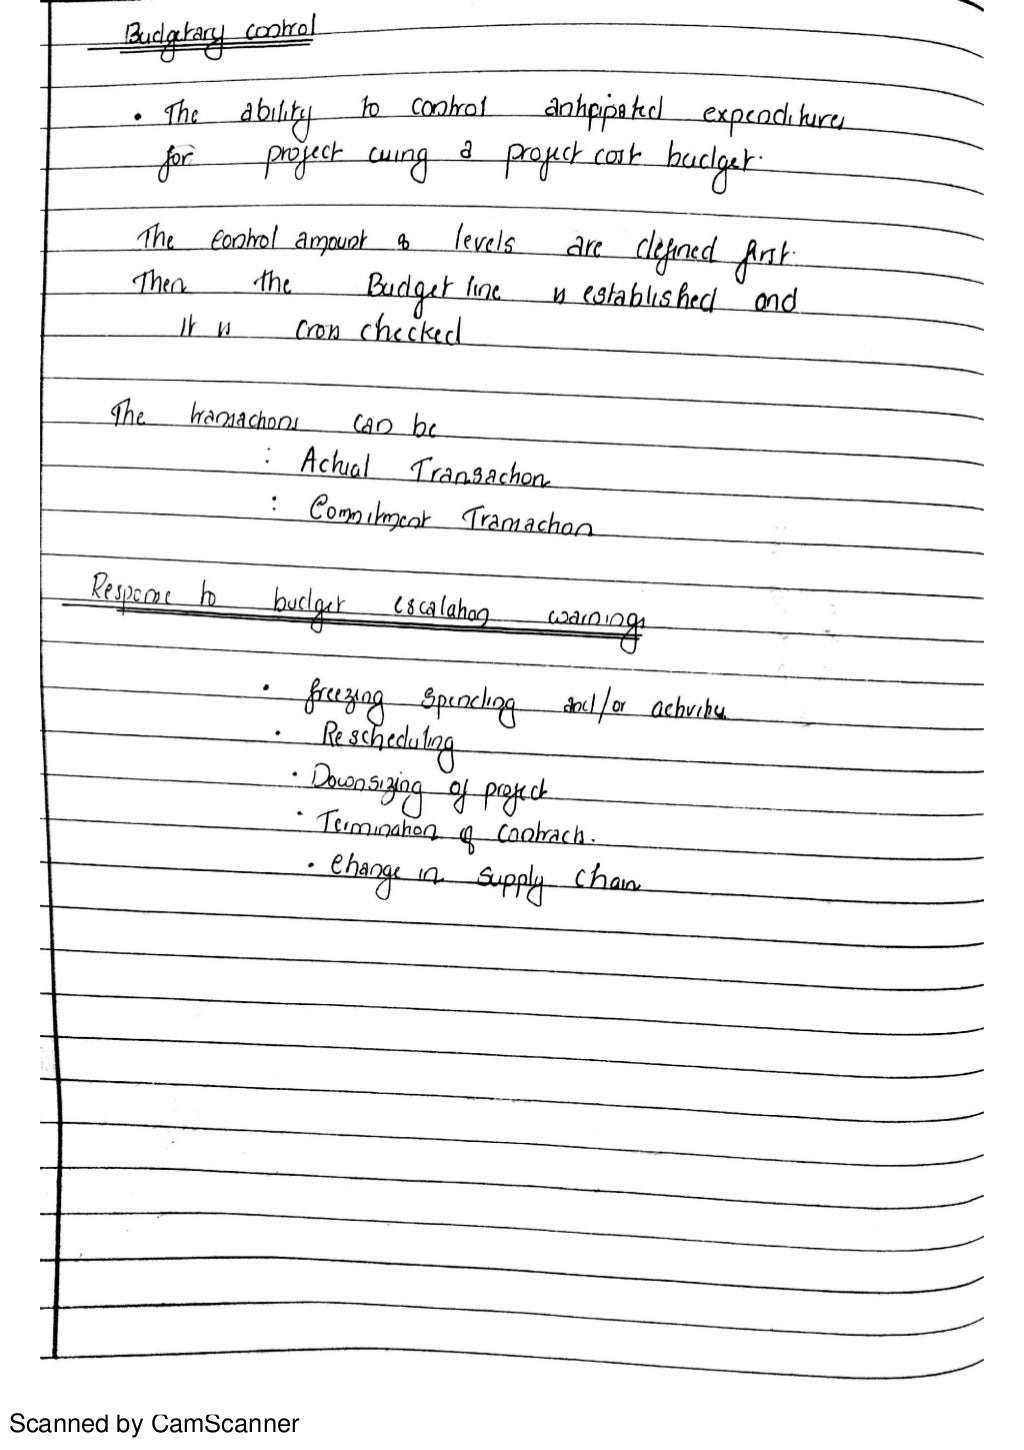 Budgetary control
• The ability to control anticipated expenditures
for project using a project cost budget.
The control amount & levels are defined first.
Then the Budget line is established and
It is cross checked
The transactions can be
: Actual Transaction
: Commitment Transaction
Response to budget escalation warnings
• freezing spending and/or activities
• Rescheduling
• Downsizing of project
• Termination of contracts.
• change in supply chain
Scanned by CamScanner